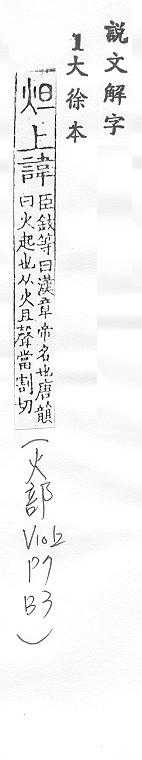 説文解字
1大徐本
炟上諱
臣鉉等曰漢章帝名也唐韻
曰火起也从火旦聲當割切
(火部
V10上
P7
B3)